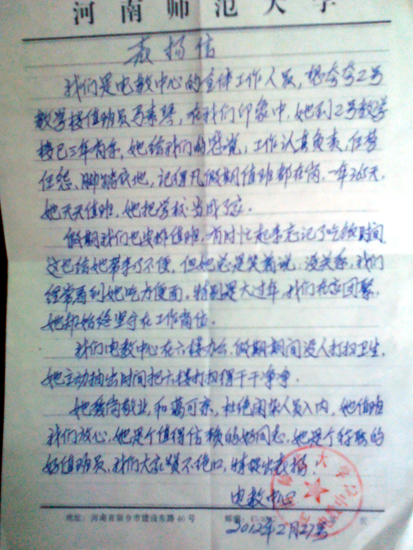 河南师范大学
表扬信
我们是电教中心的全体工作人员,想夸夸2号
教学楼值班员马素琴,在我们印象中,她到2号教学
楼已三年有余,她给我们的感觉,工作认真负责,任劳
任怨、脚踏实地,记得凡假期值班都在岗,一年365天
她天天值班,她把学校当成了家。
假期我们也安排值班,有时忙起来忘记了吃饭时间
这也给她带来了不便,但她总是笑着说:没关系,我们
经常看到她吃方便面,特别是大过年,我们在家团聚,
她却始终坚守在工作岗位。
我们电教中心在六楼办公,假期期间没人打扫卫生,
她主动抽出时间把六楼打扫得干干净净。
她爱岗敬业,和蔼可亲,杜绝闲杂人员入内,她值班
我们放心,她是个值得信赖的好同志,她是个称职的
好值班员,我们大家赞不绝口,特提出表扬。
电教中心
2012年2月27号
地址:河南省新乡市建设东路46号